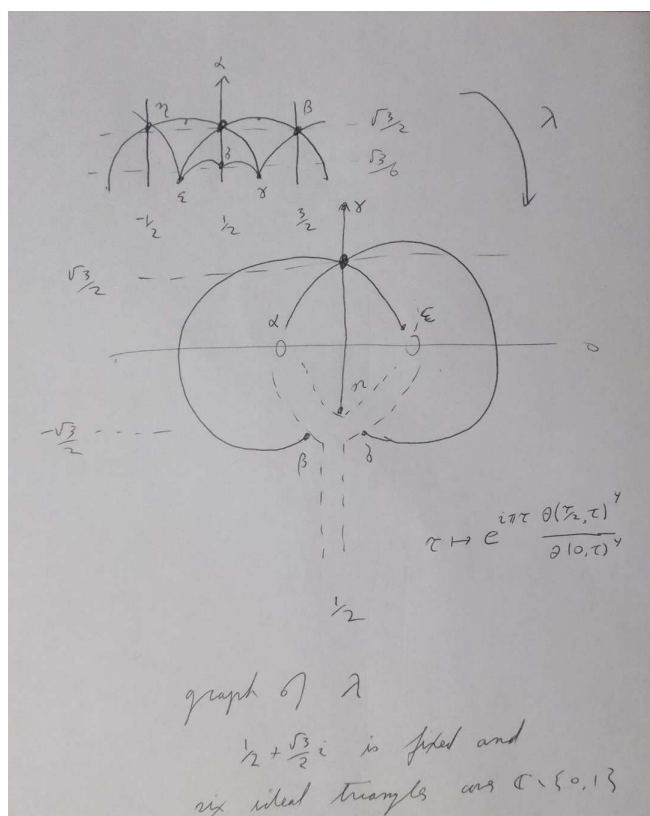 α
η
β
√3/2
λ
ζ
√3/6
ε
γ
-1/2
1/2
3/2
γ
√3/2
α
ε
0
η
-√3/2
β
ζ
τ ↦ e^{iπτ} θ(τ/2, τ)^4 / θ(0, τ)^4
1/2
graph of λ
1/2 + √3/2 i is fixed and
six ideal triangles are ℂ \ {0,1}